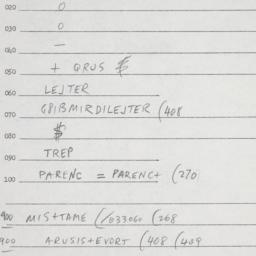 020 0
030 0
040 —
050 + QRUS $
060 LEJTER
070 G8IBMIRDILEJTER (408
080 $
090 TREP
100 PARENC = PARENC+ (270
900 MIS+TAME (/033060 (268
900 ARUSIS+EVORT (408 (409